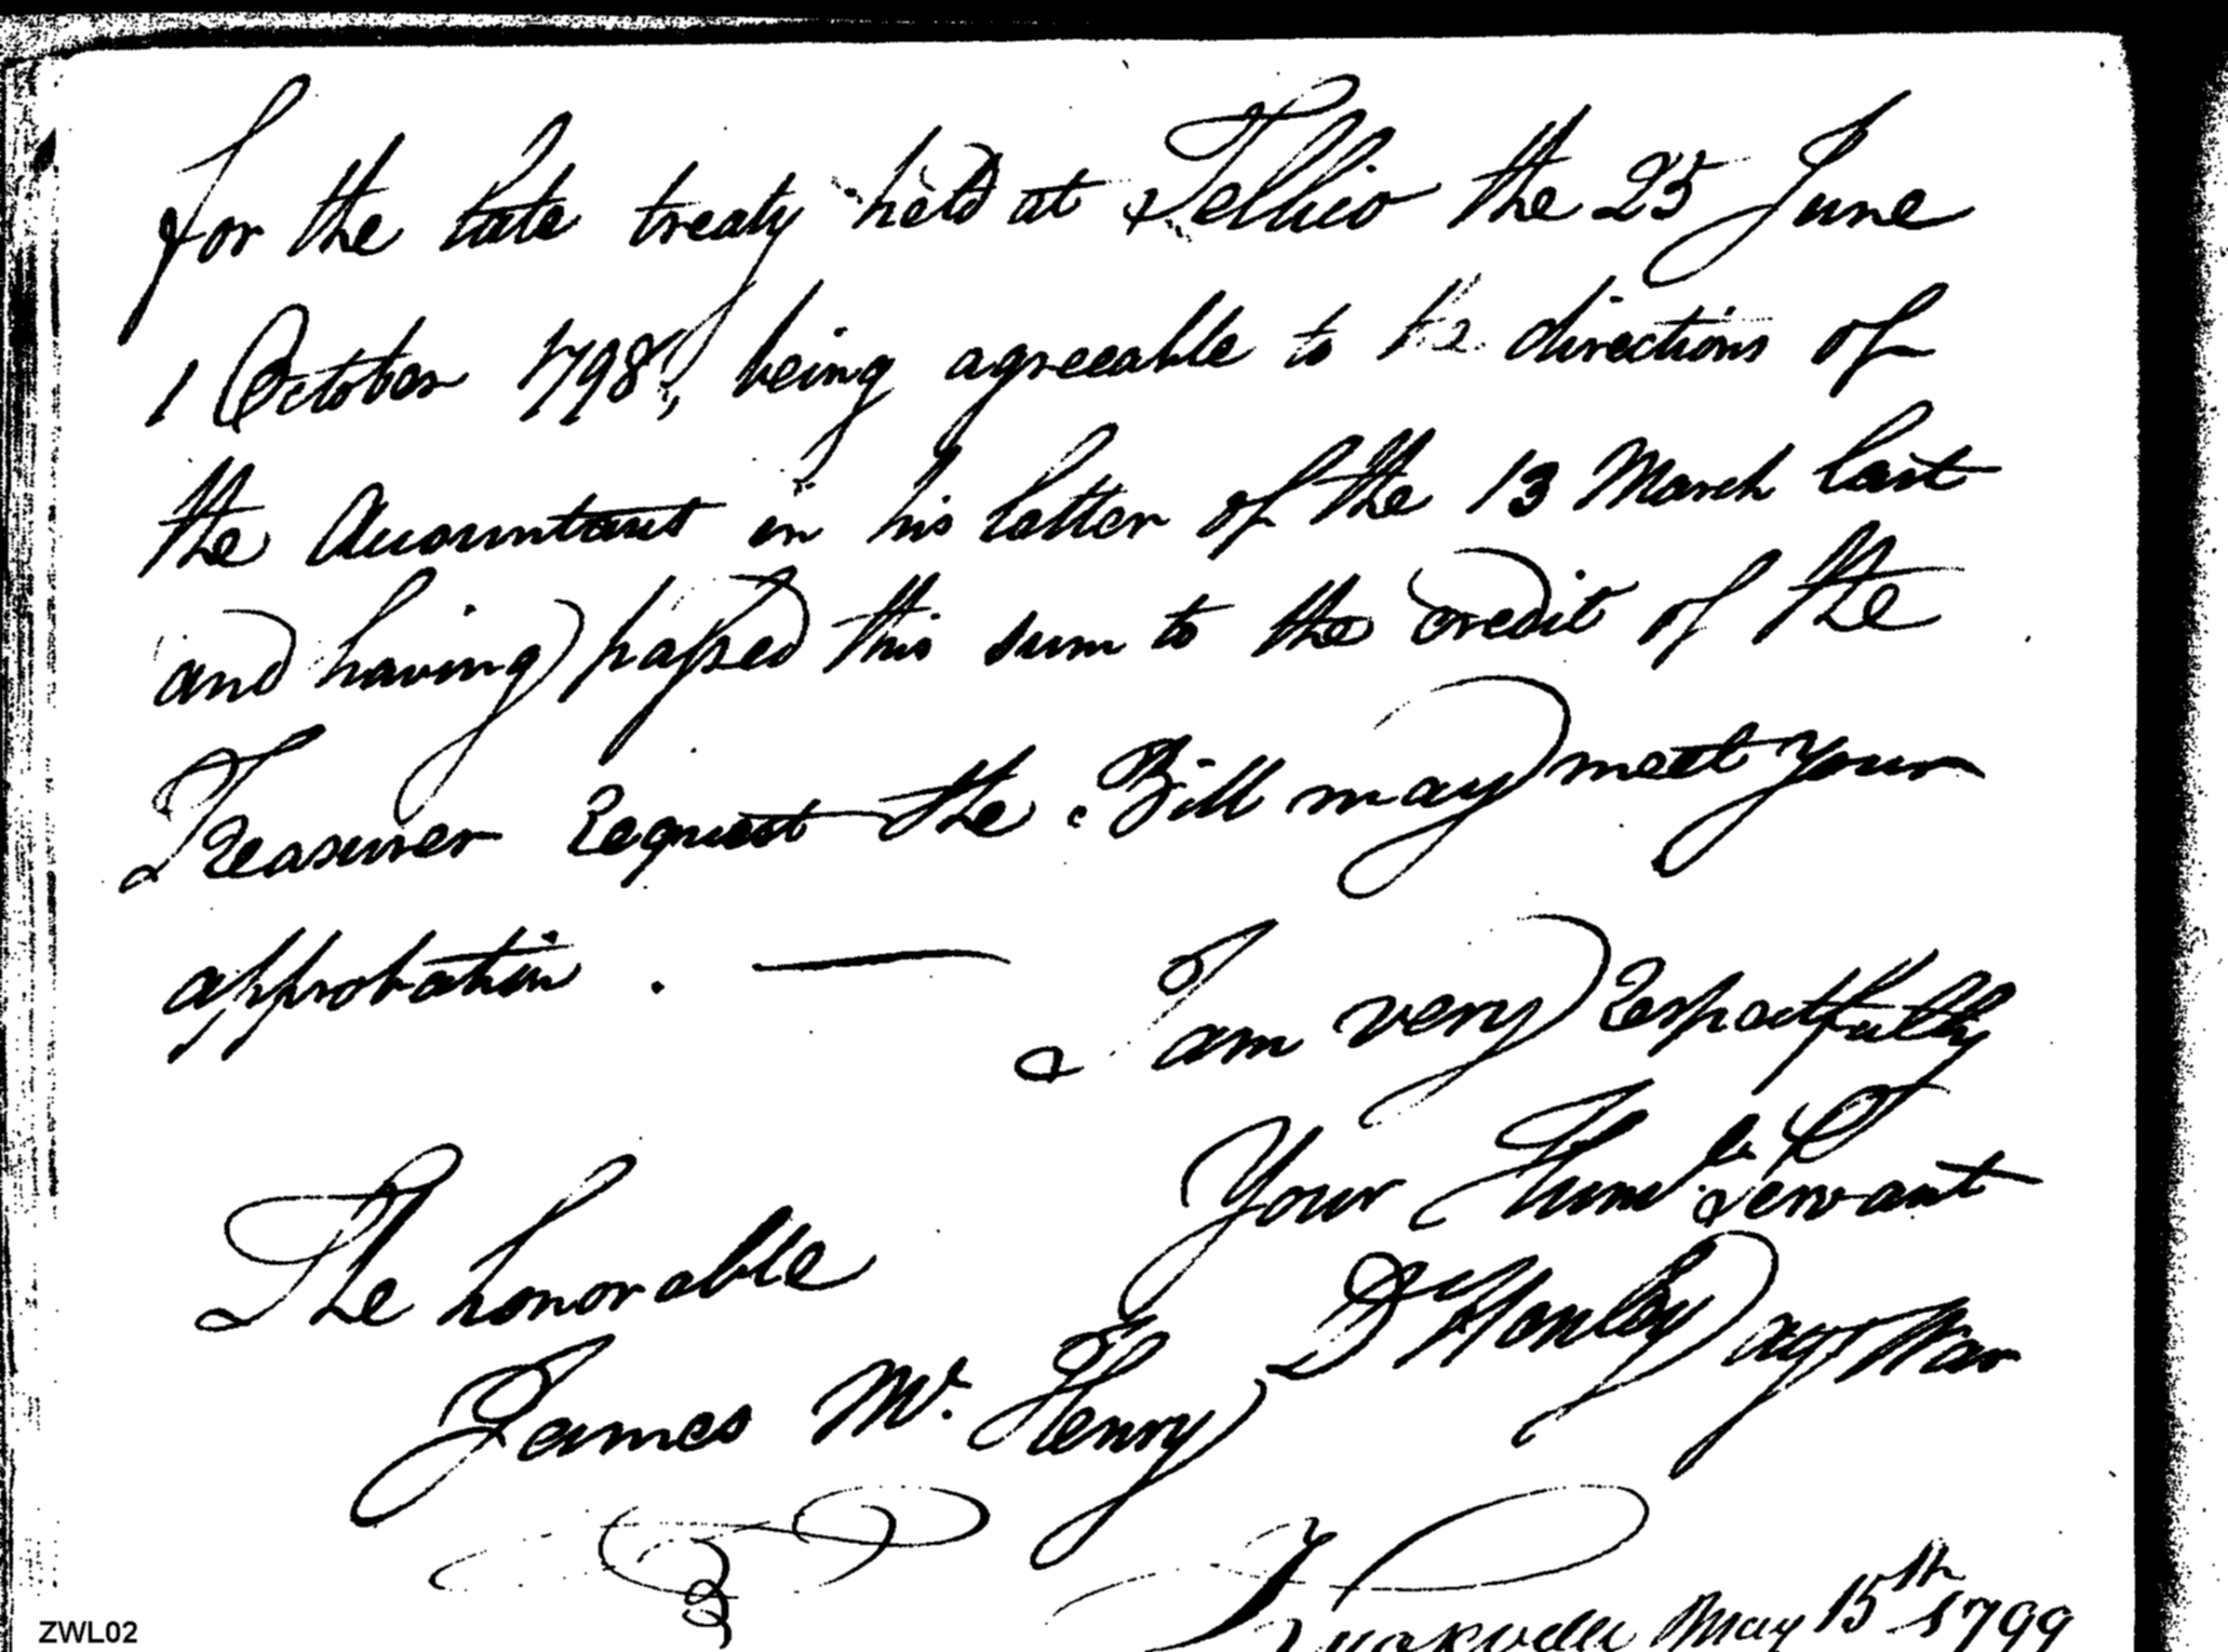 for the late treaty held at Tellico the 25 June
1 October 1798, being agreeable to the directions of
the Accountant in his letter of the 13 March last
and having passed this sum to the credit of the
Treasurer request the Bill may meet your
approbation. —
I am very respectfully
Your Humle Servant
The honorable
D Henley agt War
James Mc. Henry
Knoxville May 15th 1799
ZWL02